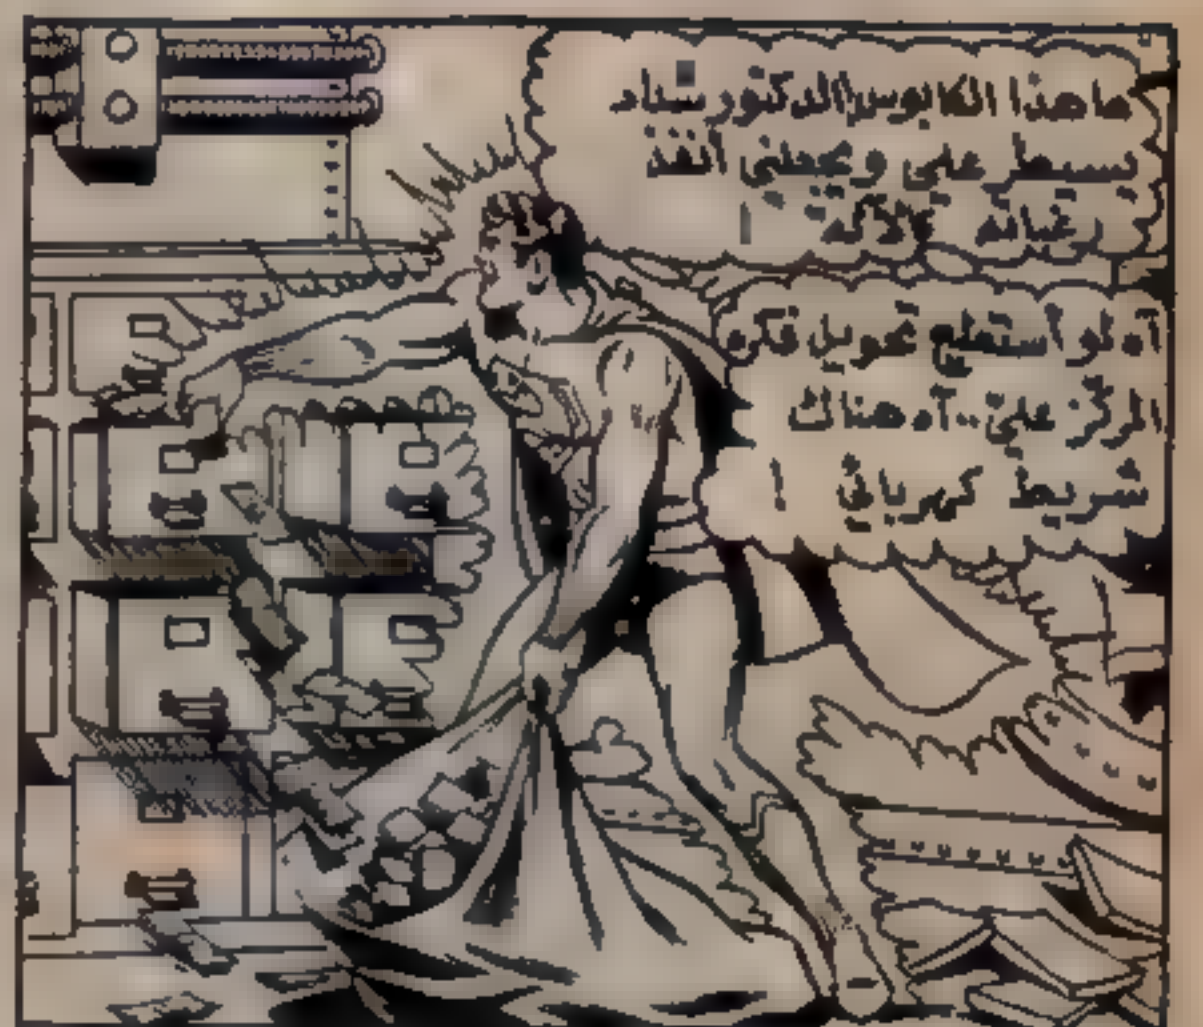 ما هذا الكابوس! الدكتور سداد
يسيطر علي ويجعلني أنفذ
رغباته كالآلة !
آه لو أستطيع تحويل فكره
المركز علي .. آه هناك
شريط كهربائي !